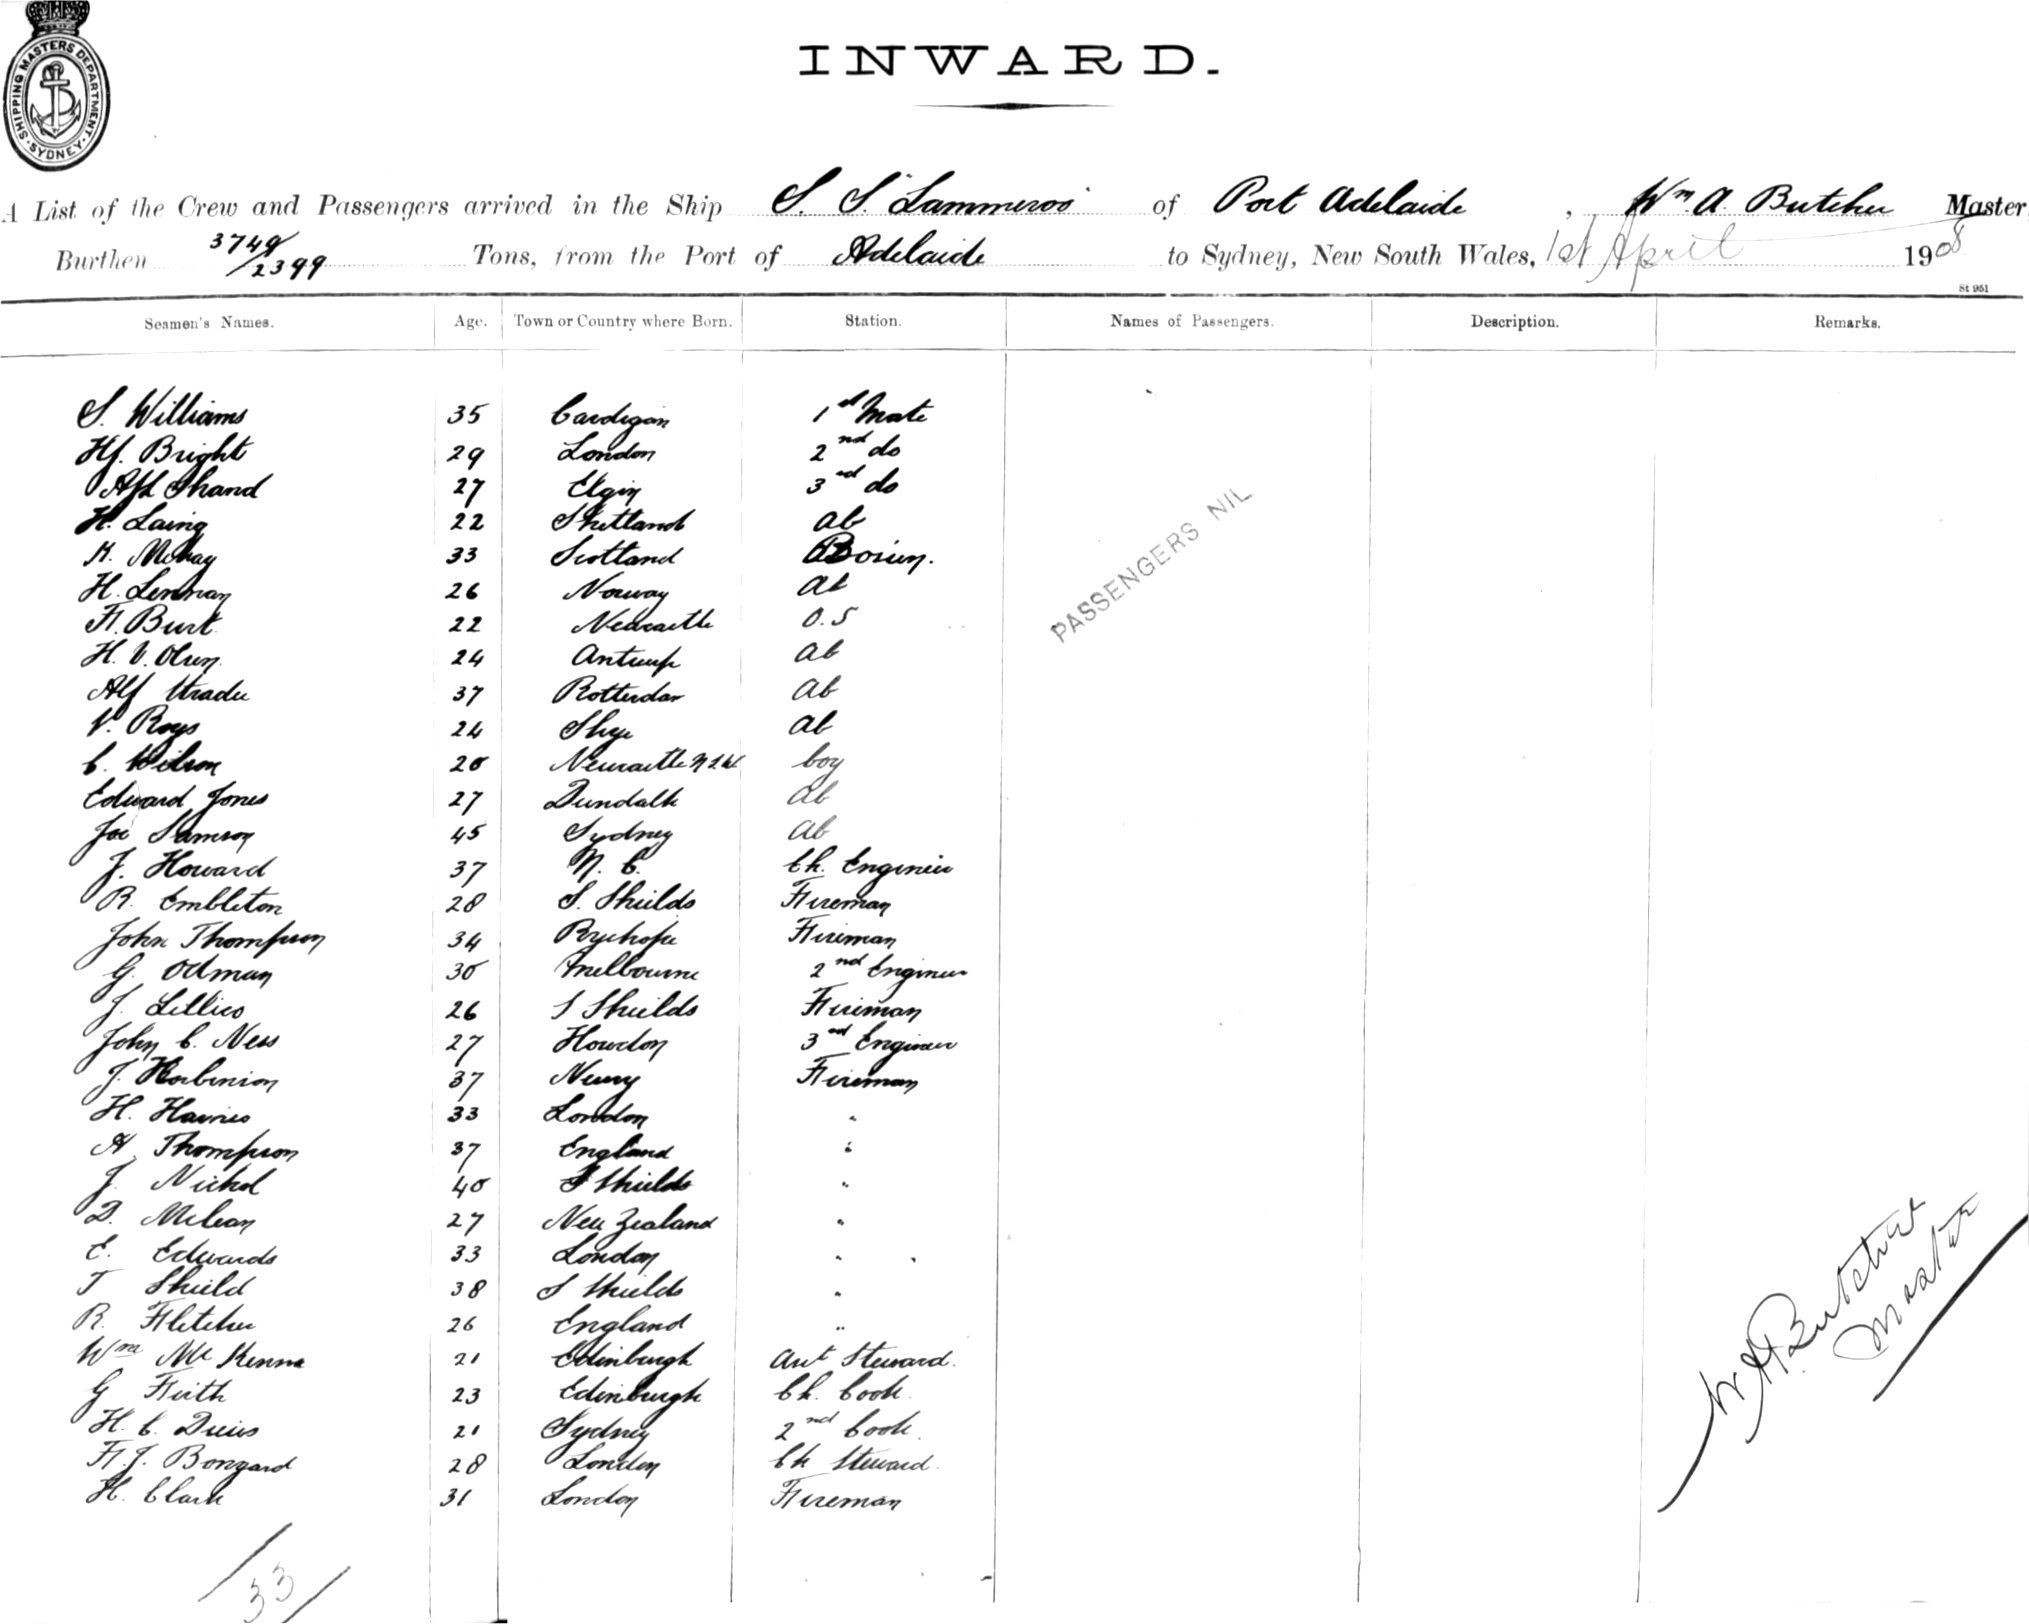 SHIPPING MASTERS DEPARTMENT SYDNEY
INWARD.
A List of the Crew and Passengers arrived in the Ship S. S. "Lammeroo" of Port Adelaide, Wm. A. Butcher Master
Burthen 3749/2399 Tons, from the Port of Adelaide to Sydney, New South Wales, 1st April 1908
St 951
Seamen's Names. Age. Town or Country where Born. Station. Names of Passengers. Description. Remarks.
S. Williams 35 Cardigan 1st Mate
Hy. Bright 29 London 2nd do
Shand 27 Elgin 3rd do
H. Laing 22 Shetland ab
McKay 33 Scotland Bosun.
H. Lennan 26 Norway ab
F. Burt 22 Newcastle O.S
H. V. Olsen 24 Antwerp ab
Alf 37 Rotterdam ab
V. Roys 24 Skye ab
C. Wilson 20 Newcastle NSW boy
Edward Jones 27 Dundalk ab
Joe Samson 45 Sydney ab
J. Howard 37 N. C. Ch. Engineer
R. Embleton 28 S. Shields Fireman
John Thompson 34 Ryehope Fireman
G. Oilman 30 Melbourne 2nd Engineer
J. Lillico 26 S Shields Fireman
John C. Ness 27 Howdon 3rd Engineer
J. Harbinion 37 Newry Fireman
H. Haines 33 London "
A. Thompson 37 England "
J. Nichol 40 S Shields "
D. McLean 27 New Zealand "
E. Edwards 33 London "
T Shield 38 S Shields "
R. Fletcher 26 England "
Wm McKenna 21 Edinburgh Asst Steward.
G Firth 23 Edinburgh Ch. Cook.
H. C. 21 Sydney 2nd Cook.
F. J. Bongard 28 London Ch Steward.
H. Clark 31 London Fireman
PASSENGERS NIL
W. A. Butcher
Master
33